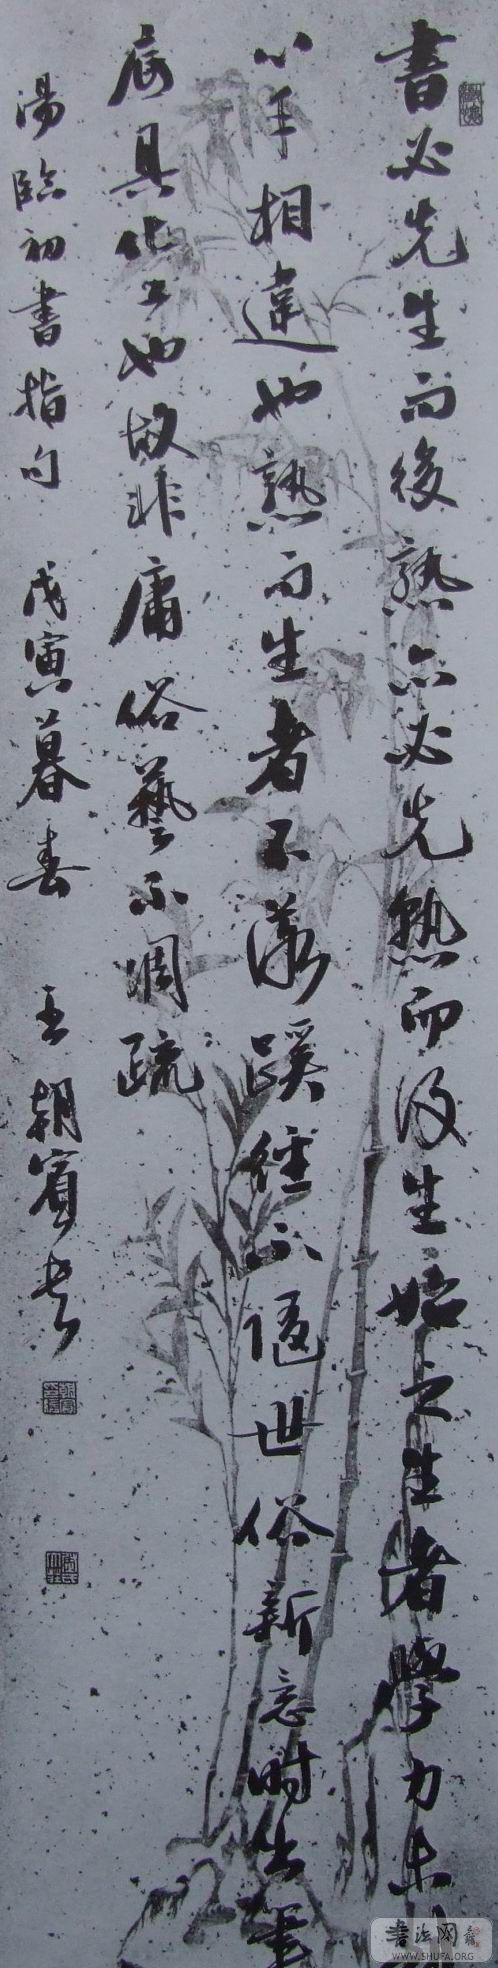 書必先生而後熟亦必先熟而後生始之生者學力未到
心手相違也熟而生者不落蹊徑不隨世俗新意時出筆
底具化工也故非庸俗藝不凋疏
湯臨初書指句 戊寅暮春 王朝賓書
書法网
WWW.SHUFA.ORG